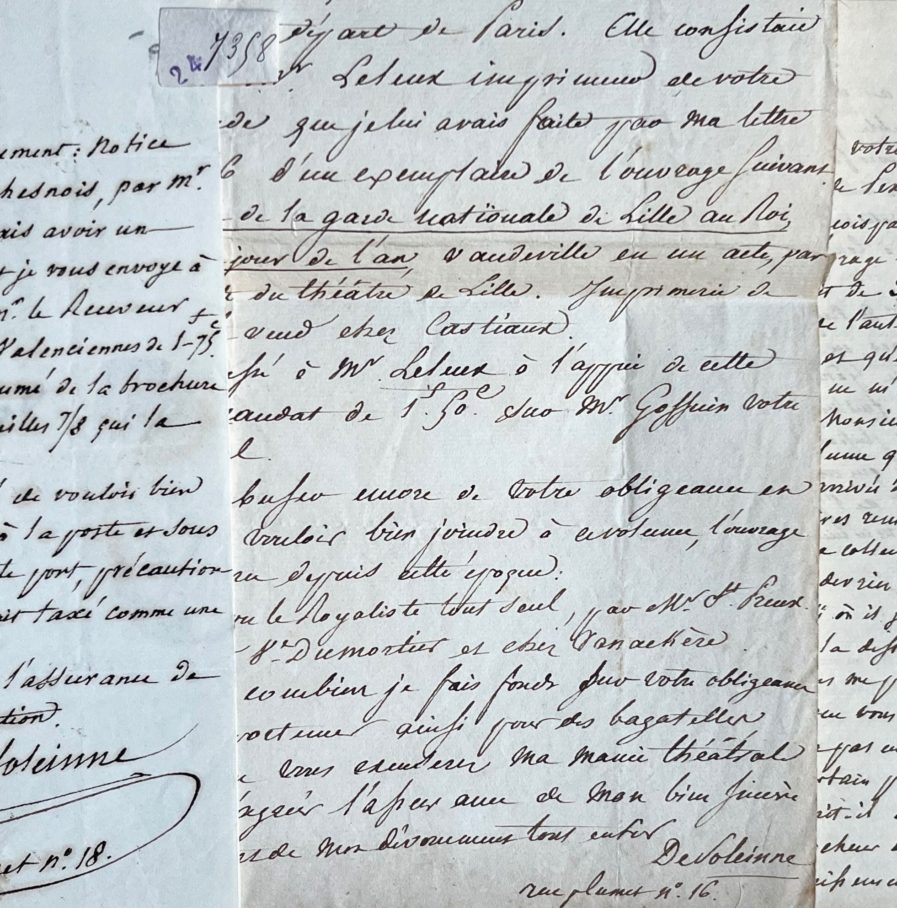 24 7358
ement : Notice
hesnois, par mr.
ais avoir un
t je vous envoye à
mr. le Receveur
Valenciennes de 1f 75c.
umé de la brochure
uilles 7/8 qui la
de vouloir bien
à la poste et sous
te port, précaution
it taxé comme une
l'assurance de
tion.
Soleinne
et no. 18.
départ de Paris. Elle consistait
mr. Leleux imprimeur de votre
de que je lui avais faite par ma lettre
d'un exemplaire de l'ouvrage suivant
de la garde nationale de Lille au Roi,
jour de l'an, vaudeville en un acte, par
du théâtre de Lille. Imprimerie de
vend chez Castiaux.
à Mr. Leleux à l'appui de cette
mandat de 1f. 50c. sur Mr. Gossuin votre
l.
abuser encore de votre obligeance en
vouloir bien joindre à ce volume, l'ouvrage
ru depuis cette époque :
ou le Royaliste tout seul, par Mr. St. Preux.
Ve. Dumortier et chez Vanackère.
combien je fais fonds sur votre obligeance
ainsi pour des bagatelles
vous excuserez ma manie théâtrale
agréer l'assurance de mon bien sincère
de mon dévouement tout entier
De Soleinne
rue plumet no. 16.
votre
de l'aut
et qu'i
Monsieu
arrivé à
collec
où il
la des
me p
vous
pas